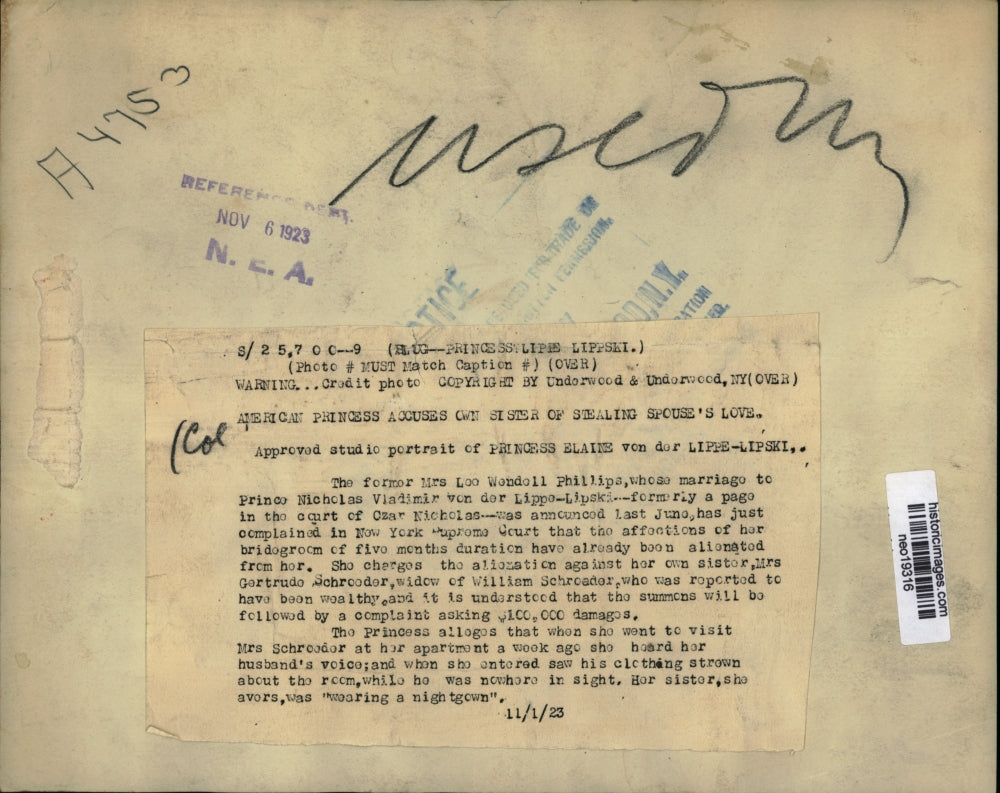 A 4753
REFERENCE DEPT.
NOV 6 1923
N. E. A.
S/25,700--9 (SLUG--PRINCESS LIPPE LIPPSKI.)
(Photo # MUST Match Caption #) (OVER)
WARNING...Credit photo COPYRIGHT BY Underwood & Underwood, NY(OVER)
AMERICAN PRINCESS ACCUSES OWN SISTER OF STEALING SPOUSE'S LOVE.
(Col
Approved studio portrait of PRINCESS ELAINE von der LIPPE-LIPSKI,.
The former Mrs Lee Wendell Phillips,whose marriage to
Prince Nicholas Vladimir von der Lippe-Lipski--formerly a page
in the court of Czar Nicholas--was announced last June,has just
complained in New York Supreme Court that the affections of her
bridegroom of five months duration have already been alienated
from her. She charges the alienation against her own sister,Mrs
Gertrude Schroeder,widow of William Schroeder,who was reported to
have been wealthy,and it is understood that the summons will be
followed by a complaint asking $100,000 damages.
The Princess alleges that when she went to visit
Mrs Schroeder at her apartment a week ago she heard her
husband's voice;and when she entered saw his clothing strewn
about the room,while he was nowhere in sight. Her sister,she
avers,was "wearing a nightgown".
11/1/23
historicimages.com
neo19316